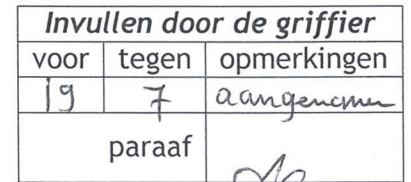 Invullen door de griffier
voor tegen opmerkingen
19 7 aangenomen
paraaf